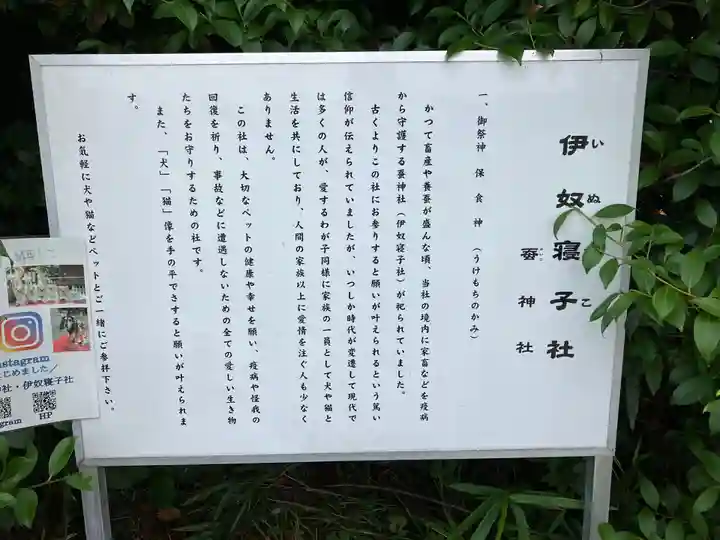 伊奴寝子社
いぬ
こ
蚕神社
一、御祭神 保食神 (うけもちのかみ)
かつて畜産や養蚕が盛んな頃、当社の境内に家畜などを疫病
から守護する蚕神社(伊奴寝子社)が祀られていました。
古くよりこの社にお参りすると願いが叶えられるという篤い
信仰が伝えられていましたが、いつしか時代が変遷して現代で
は多くの人が、愛するわが子同様に家族の一員として犬や猫と
生活を共にしており、人間の家族以上に愛情を注ぐ人も少なく
ありません。
この社は、大切なペットの健康や幸せを願い、疫病や怪我の
回復を祈り、事故などに遭遇しないための全ての愛しい生き物
たちをお守りするための社です。
また、「犬」「猫」像を手の平でさすると願いが叶えられま
す。
お気軽に犬や猫などペットとご一緒にご参拝下さい。
nstagram
はじめました/
社・伊奴寝子社
gram HP